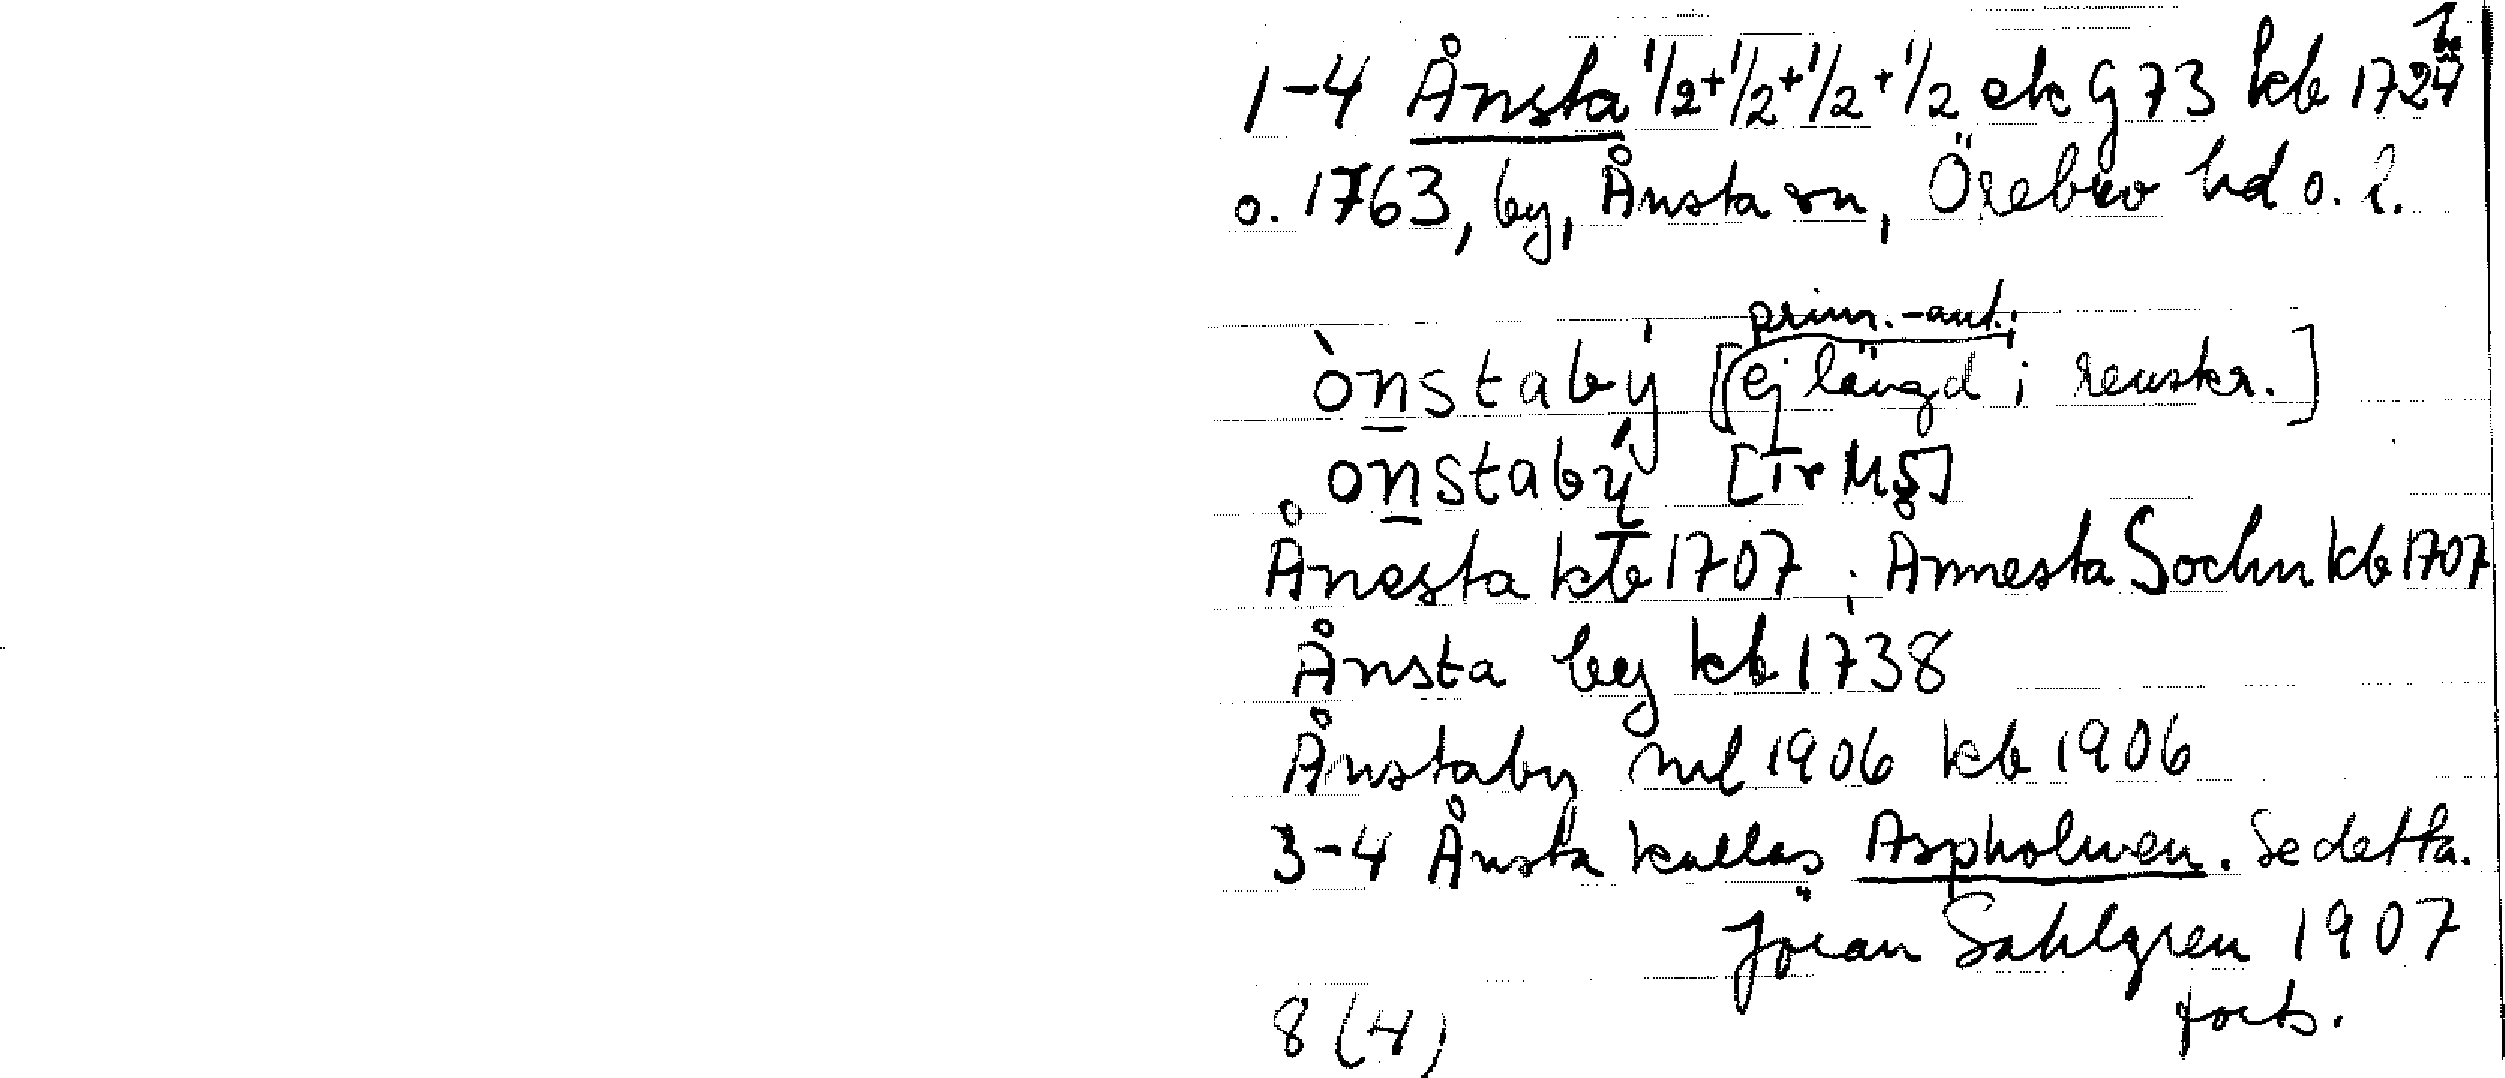 1-4 Ånsta 1/2+1/2+1/2+1/2 ek G 73 kb 1724
o. 1763, by, Ånsta sn, Örebro hd o. l.
prim.-ant.;
ònstabý [ej längd i renskr.]
onstabý [Tr MS]
Ånesta kb 1707; Ånnesta Sochn kb 1707
Ånsta by kb 1738
Ånstaby ml 1906 kb 1906
3-4 Ånsta kallas Aspholmen. Se detta.
Jöran Sahlgren 1907
forts.
8 (4)